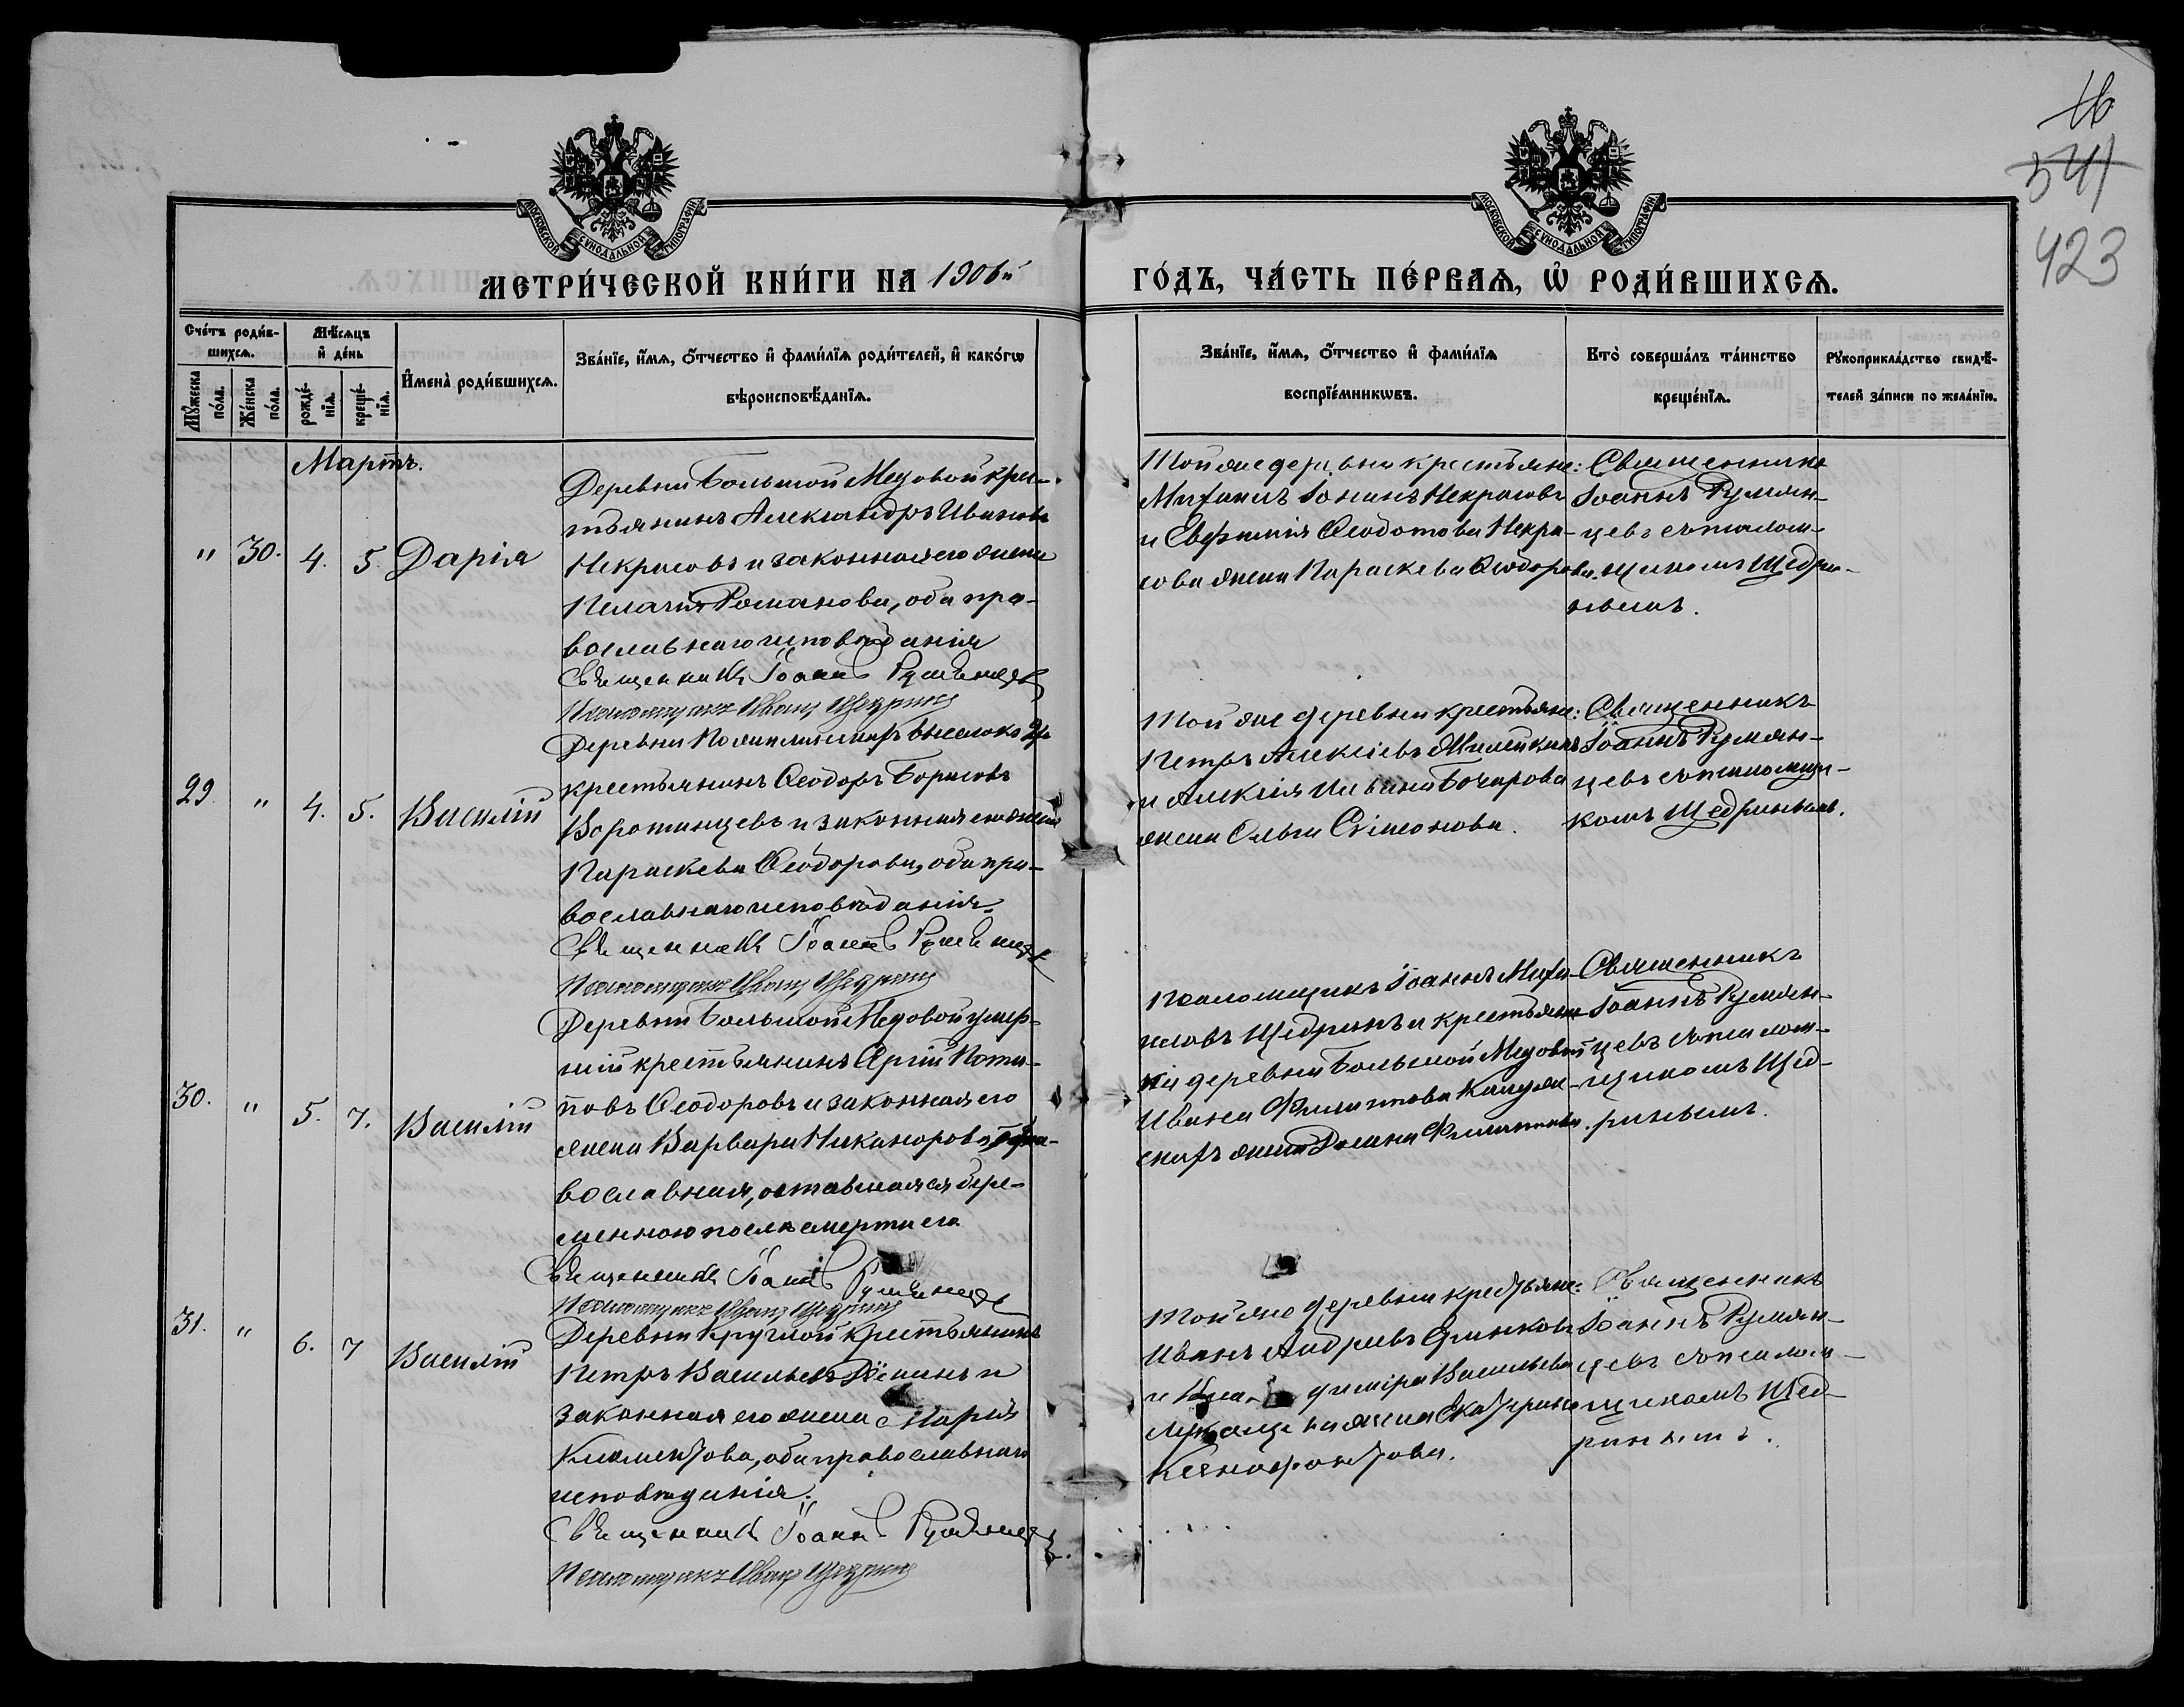 16
541
423
МОСКОВСКОЙ СѴНОДАЛЬНОЙ ТИПОГРАФІИ
МОСКОВСКОЙ СѴНОДАЛЬНОЙ ТИПОГРАФІИ
МЕТРИ́ЧЕСКОЙ КНИ́ГИ НА 1906й
ГО́ДЪ, ЧА́СТЬ ПЕ́РВАѦ, Ѡ҆ РОДИ́ВШИХСѦ.
Сче́тъ роди́в-
шихсѧ.
Мѣ́сѧцъ
и҆ де́нь
Мꙋ́жеска
по́ла.
Же́нска
по́ла.
рожде́-
нїѧ.
креще́-
нїѧ.
И҆мена̀ роди́вшихсѧ.
Зва́нїе, и҆́мѧ, ѻ҆́тчество и҆ фами́лїѧ роди́телей, и҆ како́гѡ
вѣроисповѣ́данїѧ.
Зва́нїе, и҆́мѧ, ѻ҆́тчество и҆ фами́лїѧ
воспрїе́мникѡвъ.
Кто̀ соверша́лъ та́инство
креще́нїѧ.
Рꙋкоприкла́дство свидѣ́-
телей за́писи по жела́нїю.
Мартъ.
" 30. 4. 5. Дарія
Деревни Большой Медовой крес-
тьянинъ Александръ Ивановъ
Некрасовъ и законная его жена
Пелагія Романова, оба пра-
вославнаго исповѣданія
Священникъ Іоаннъ Румянцевъ
Псаломщикъ Иванъ Щедринъ
Той же деревни крестьяне:
Михаилъ Іонинъ Некрасовъ
и Евфимія Ѳеодотова Некра-
сова жена Параскева Ѳеодорова.
Священникъ
Іоаннъ Румян-
цевъ съ псалом-
щикомъ Щедри-
нымъ.
29 " 4. 5. Василій
Деревни
крестьянинъ Ѳеодоръ Борисовъ
Воротынцевъ и законная его жена
Параскева Ѳеодорова, оба пра-
вославнаго исповѣданія.
Священникъ Іоаннъ Румянцевъ
Псаломщикъ Иванъ Щедринъ
Той же деревни крестьяне:
Петръ Алексіевъ
и Алексія Бочарова
жена Ольга Симонова.
Священникъ
Іоаннъ Румян-
цевъ съ псаломщи-
комъ Щедринымъ.
30. " 5. 7. Василій
Деревни Большой Медовой умер-
шій крестьянинъ Сергій Пота-
повъ Ѳеодоровъ и законная его
жена Варвара Никанорова, пра-
вославная, оставшаяся бере-
менною послѣ смерти его
Священникъ Іоаннъ Румянцевъ
Псаломщикъ Иванъ Щедринъ
Псаломщикъ Іоаннъ Михаи-
ловъ Щедринъ и крестьяни-
на деревни Большой Медовой
Ивана Филиппова
жена Филиппова.
Священникъ
Іоаннъ Румян-
цевъ съ псалом-
щикомъ Щед-
ринымъ.
31. " 6. 7 Василій
Деревни Круглой крестьянинъ
Петръ Васильевъ и
законная его жена Марія
Климентова, оба православнаго
исповѣданія.
Священникъ Іоаннъ Румянцевъ
Псаломщикъ Иванъ Щедринъ
Той же деревни крестьяне:
Иванъ Андреевъ
и Васильева
жена Екатерина
Ксенофонтова.
Священникъ
Іоаннъ Румян-
цевъ съ псалом-
щикомъ Щед-
ринымъ.